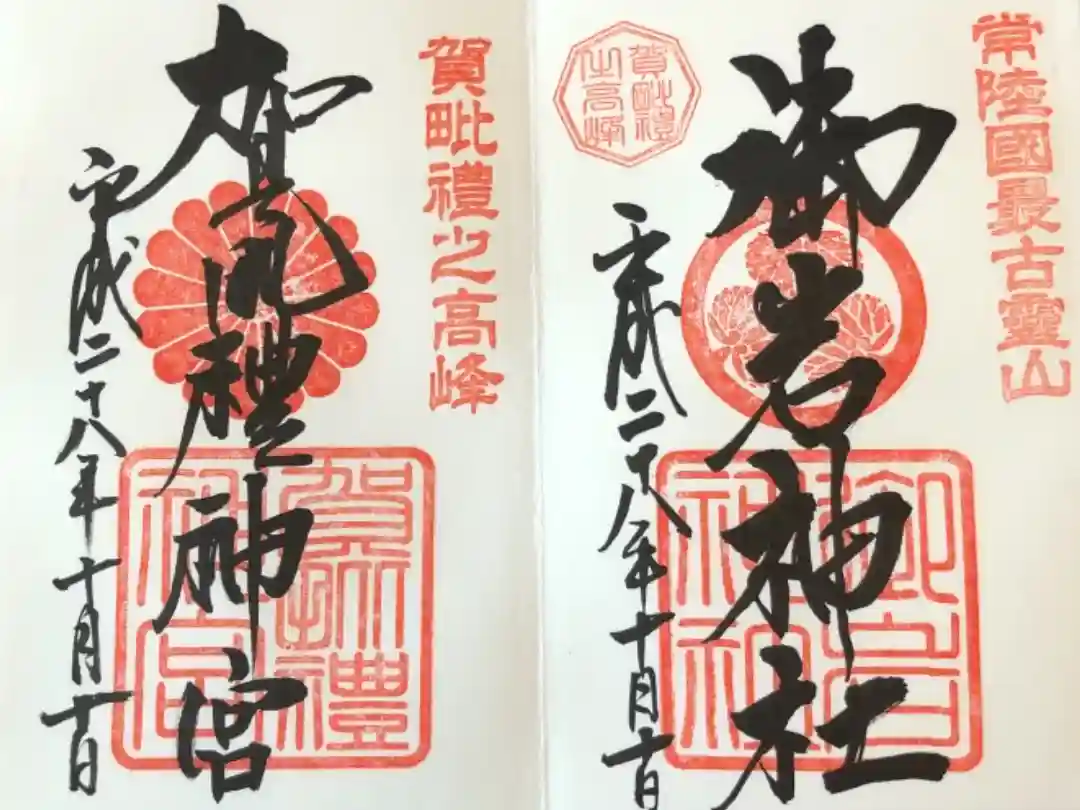 常陸國最古靈山
御岩神社
御岩神社
賀毗禮之高峰
平成二十八年十月十日
賀毗禮之高峰
賀毗禮神宮
賀毗禮神宮
平成二十八年十月十日